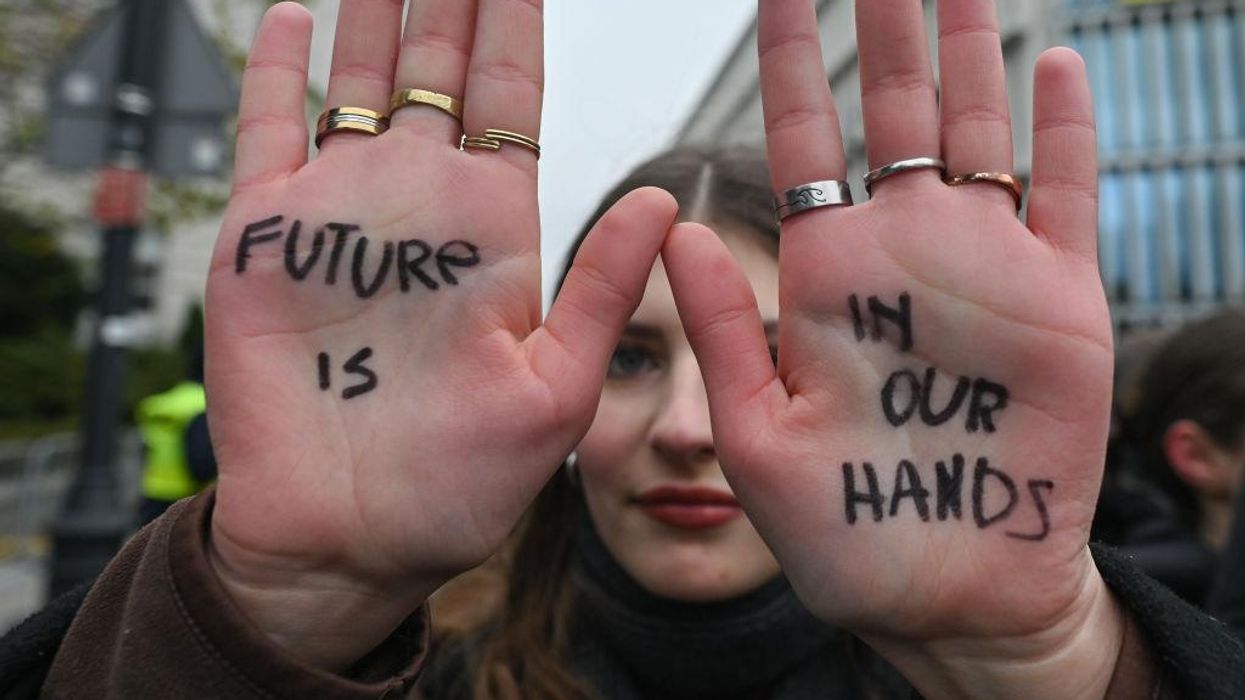 FUTURE
IS
IN
OUR
HANDS